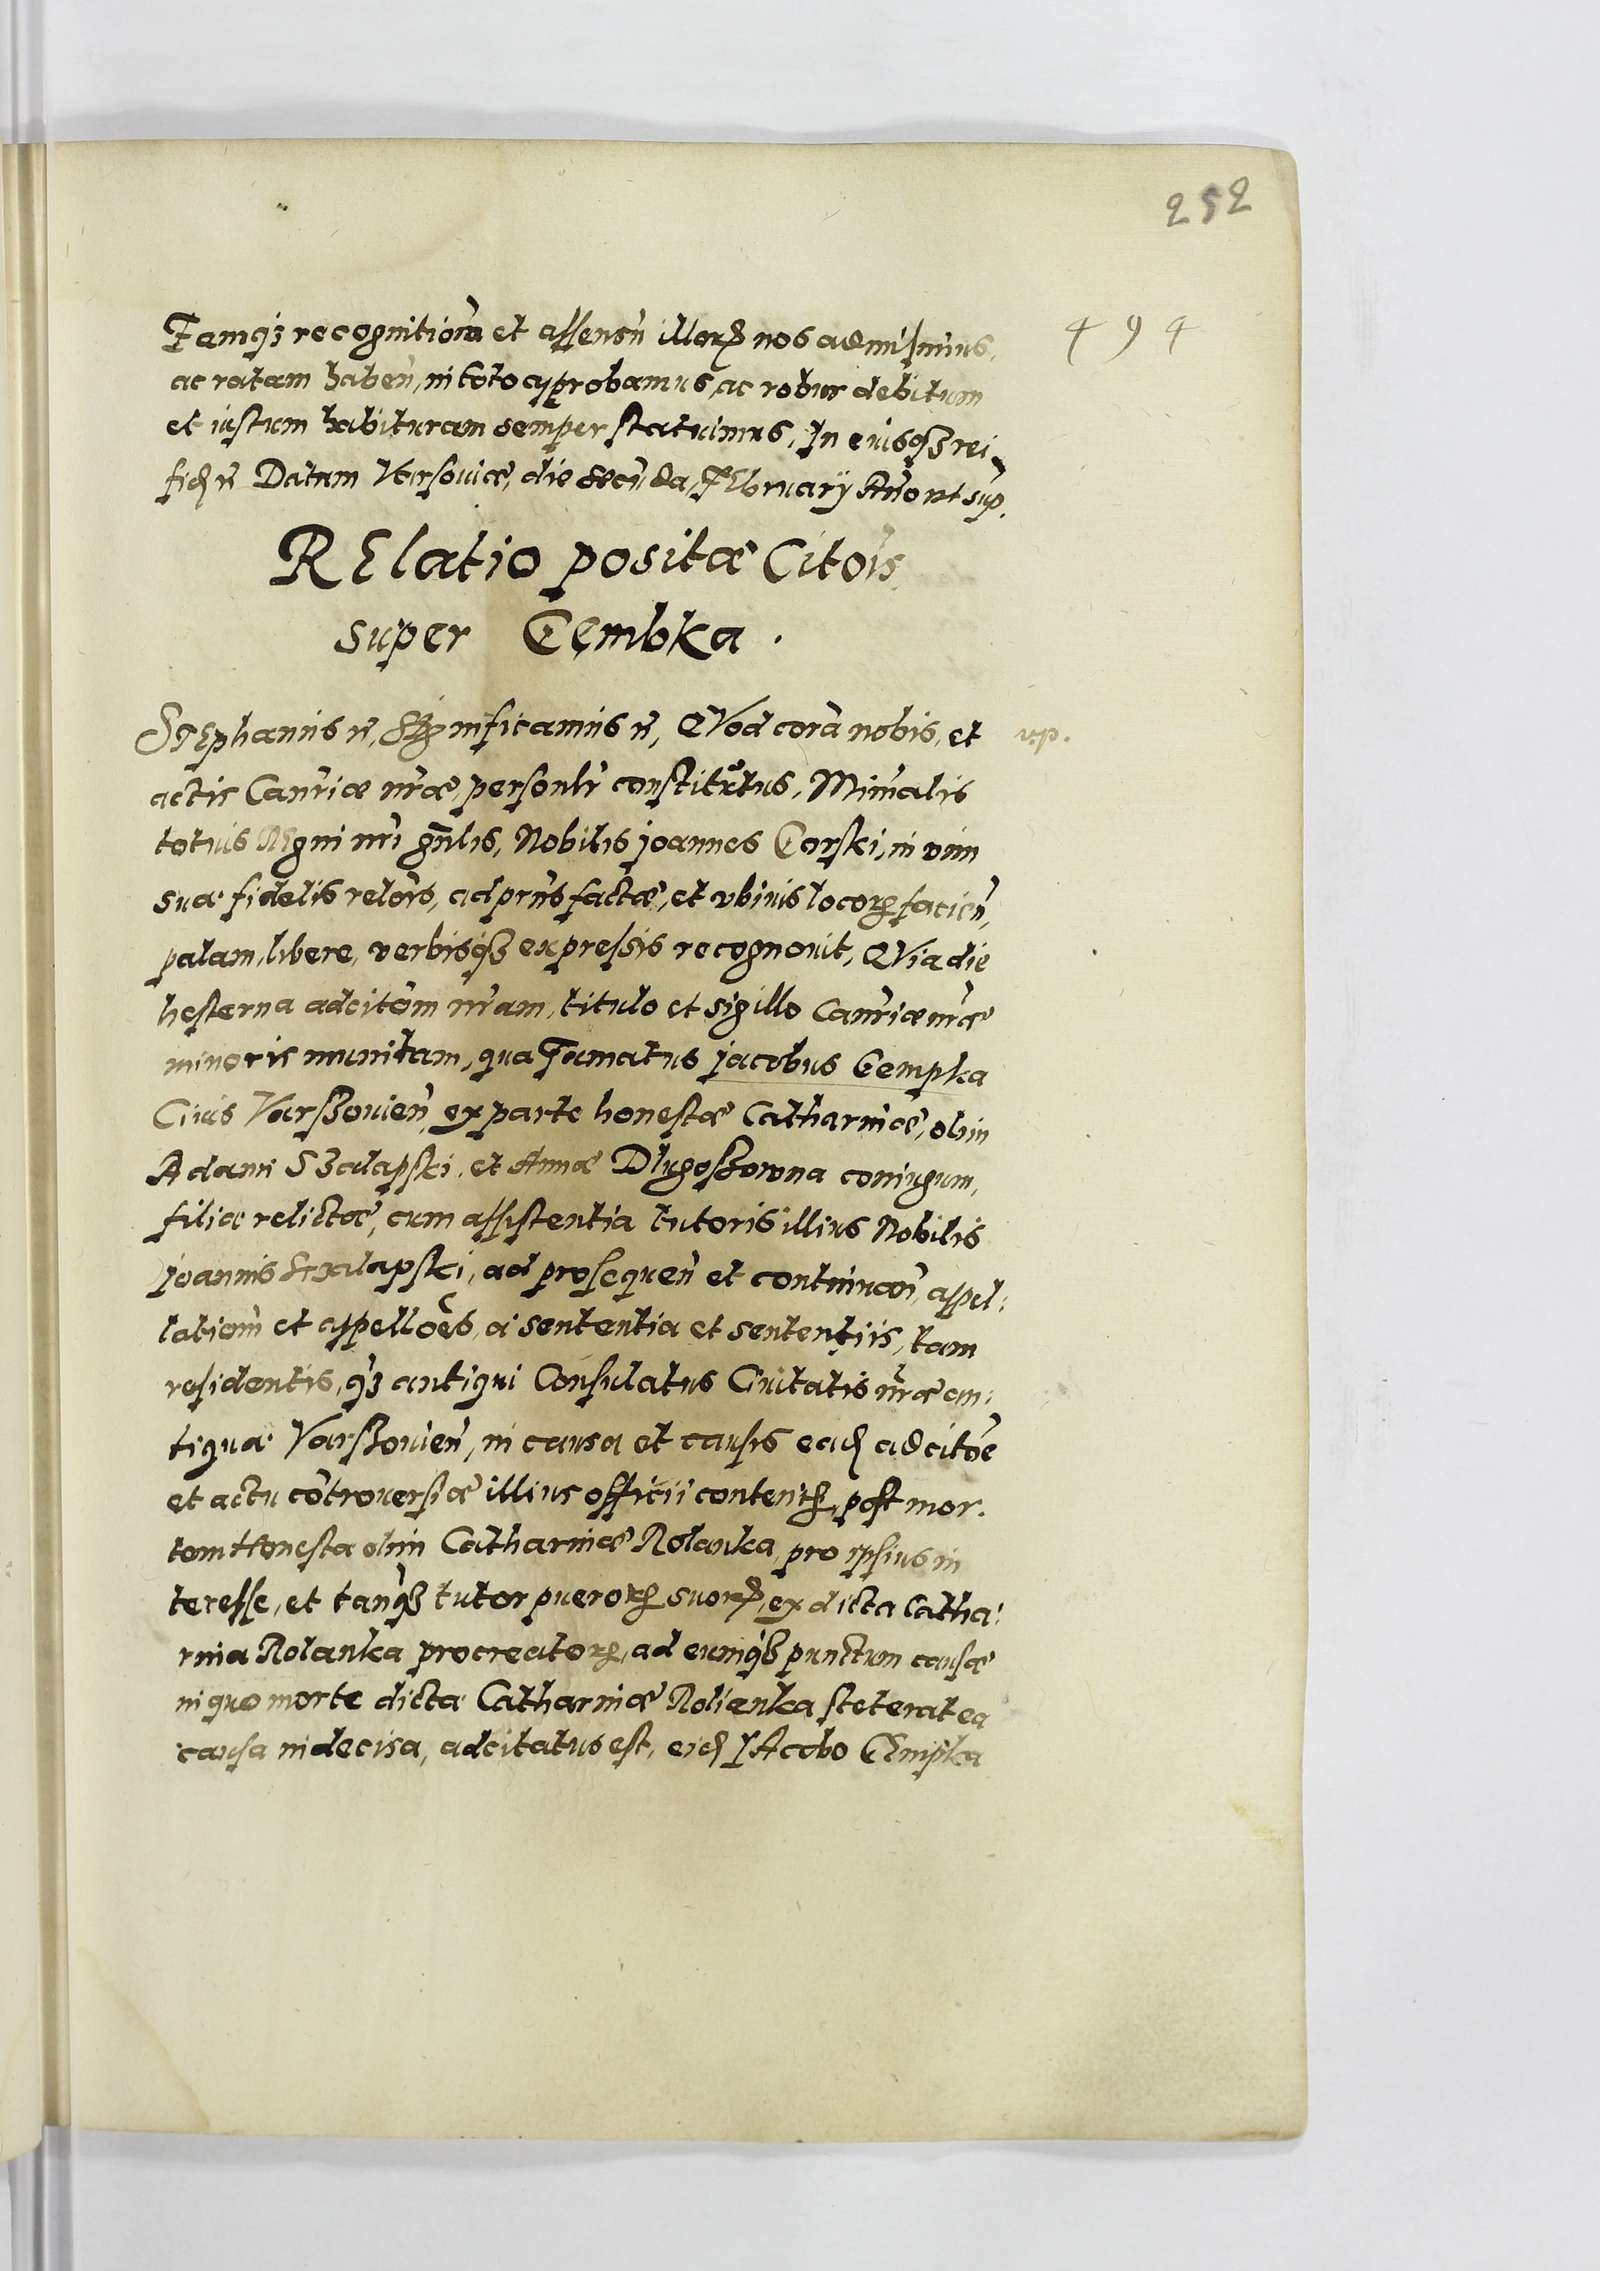 252
494
Eamq3 recognitiom̃ et assensũ illorꝝ nos admisimus,
ac ratam haben̄, in toto approbamus, ac robur debitum
et iustum habituram semper statuimus, In cuiusq3 rei
fidꝫ ꝛc Datam Varsouiæ, die secũda, FEbruarÿ An̄o ut sup.
RElatio positæ Cito͠is
super Cembka.
STEphanus ꝛc, SIgnificamus ꝛc, QVod corã nobis, et
up.
actis Can̄riæ nr̄æ, personlr̄ constitutus, Min̄ralis
totius REgni nr̄i gn̄lis, Nobilis Joannes Corski, in vim
suæ fidelis relōis, ad prn̄s factæ, et vbiuis locorꝝ facien̄,
palam, libere, verbisq3 expressis recognouit, QVia die
hesterna adcitōm nr̄am, titulo et sigillo Can̄riæ nr̄æ
minoris munitam, qua Famatus Jacobus Gempka
Ciuis Varssouien̄, ex parte honestæ Catharinæ, olim
Adami Szalapski, et Annæ Dlugoszowna coniugum,
filiæ relictæ, cum assistentia tutoris illius Nobilis
Joannis Szalapski, ad prosequen̄ et continuan̄, appel:
lationẽ et appellōẽs, a sententia et sententiis, tam
residentis, q3 antiqui Consulatus Ciuitatis nr̄æ an:
tiquæ Varssouien̄, in causa et causis eadꝫ adcitōe
et actu cõtrouersiæ illius officii contentꝝ, post mor.
tem Honestæ olim Catharinæ Rolanka, pro ipsius in
teresse, et tanq̃3 tutor puerorꝝ suorꝝ, ex dicta Catha:
rina Rolanka procreatorꝝ, ad eumq3 punctum causæ
in quo morte dictæ Catharinæ Rolianka steterat ea
causa indecisa, adcitatus est, eidꝫ JAcobo CEmpka